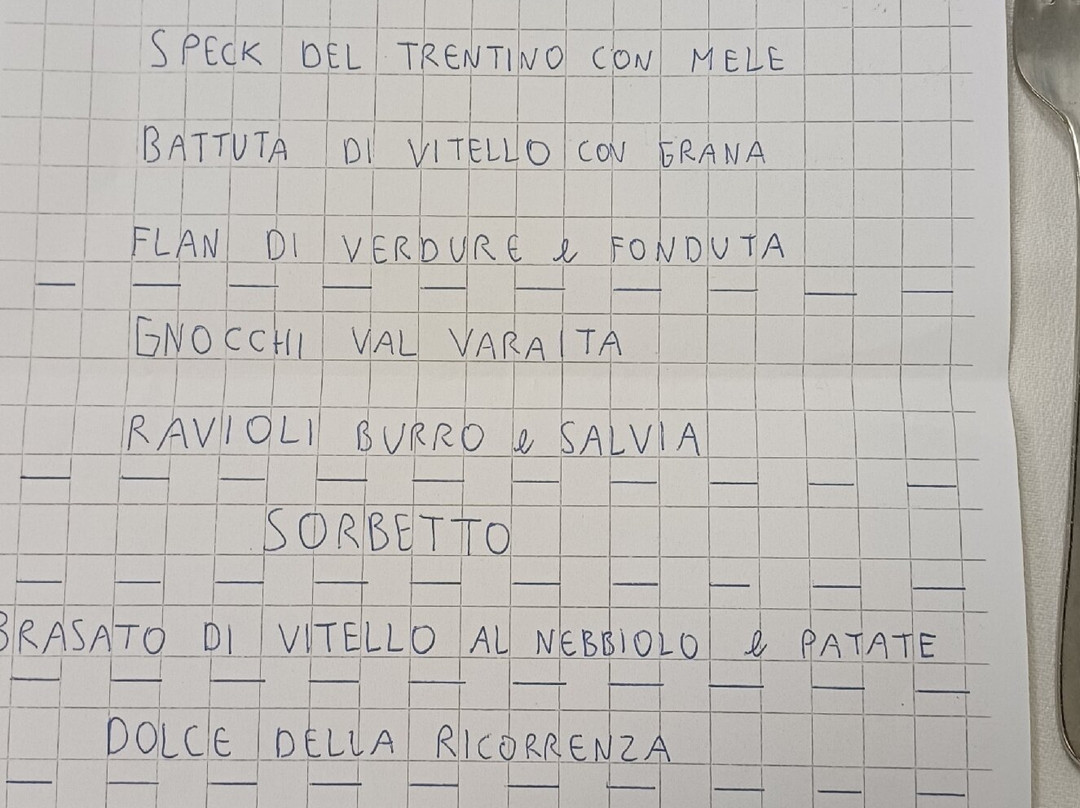 SPECK DEL TRENTINO CON MELE
BATTUTA DI VITELLO CON GRANA
FLAN DI VERDURE e FONDUTA
GNOCCHI VAL VARAITA
RAVIOLI BURRO e SALVIA
SORBETTO
BRASATO DI VITELLO AL NEBBIOLO e PATATE
DOLCE DELLA RICORRENZA